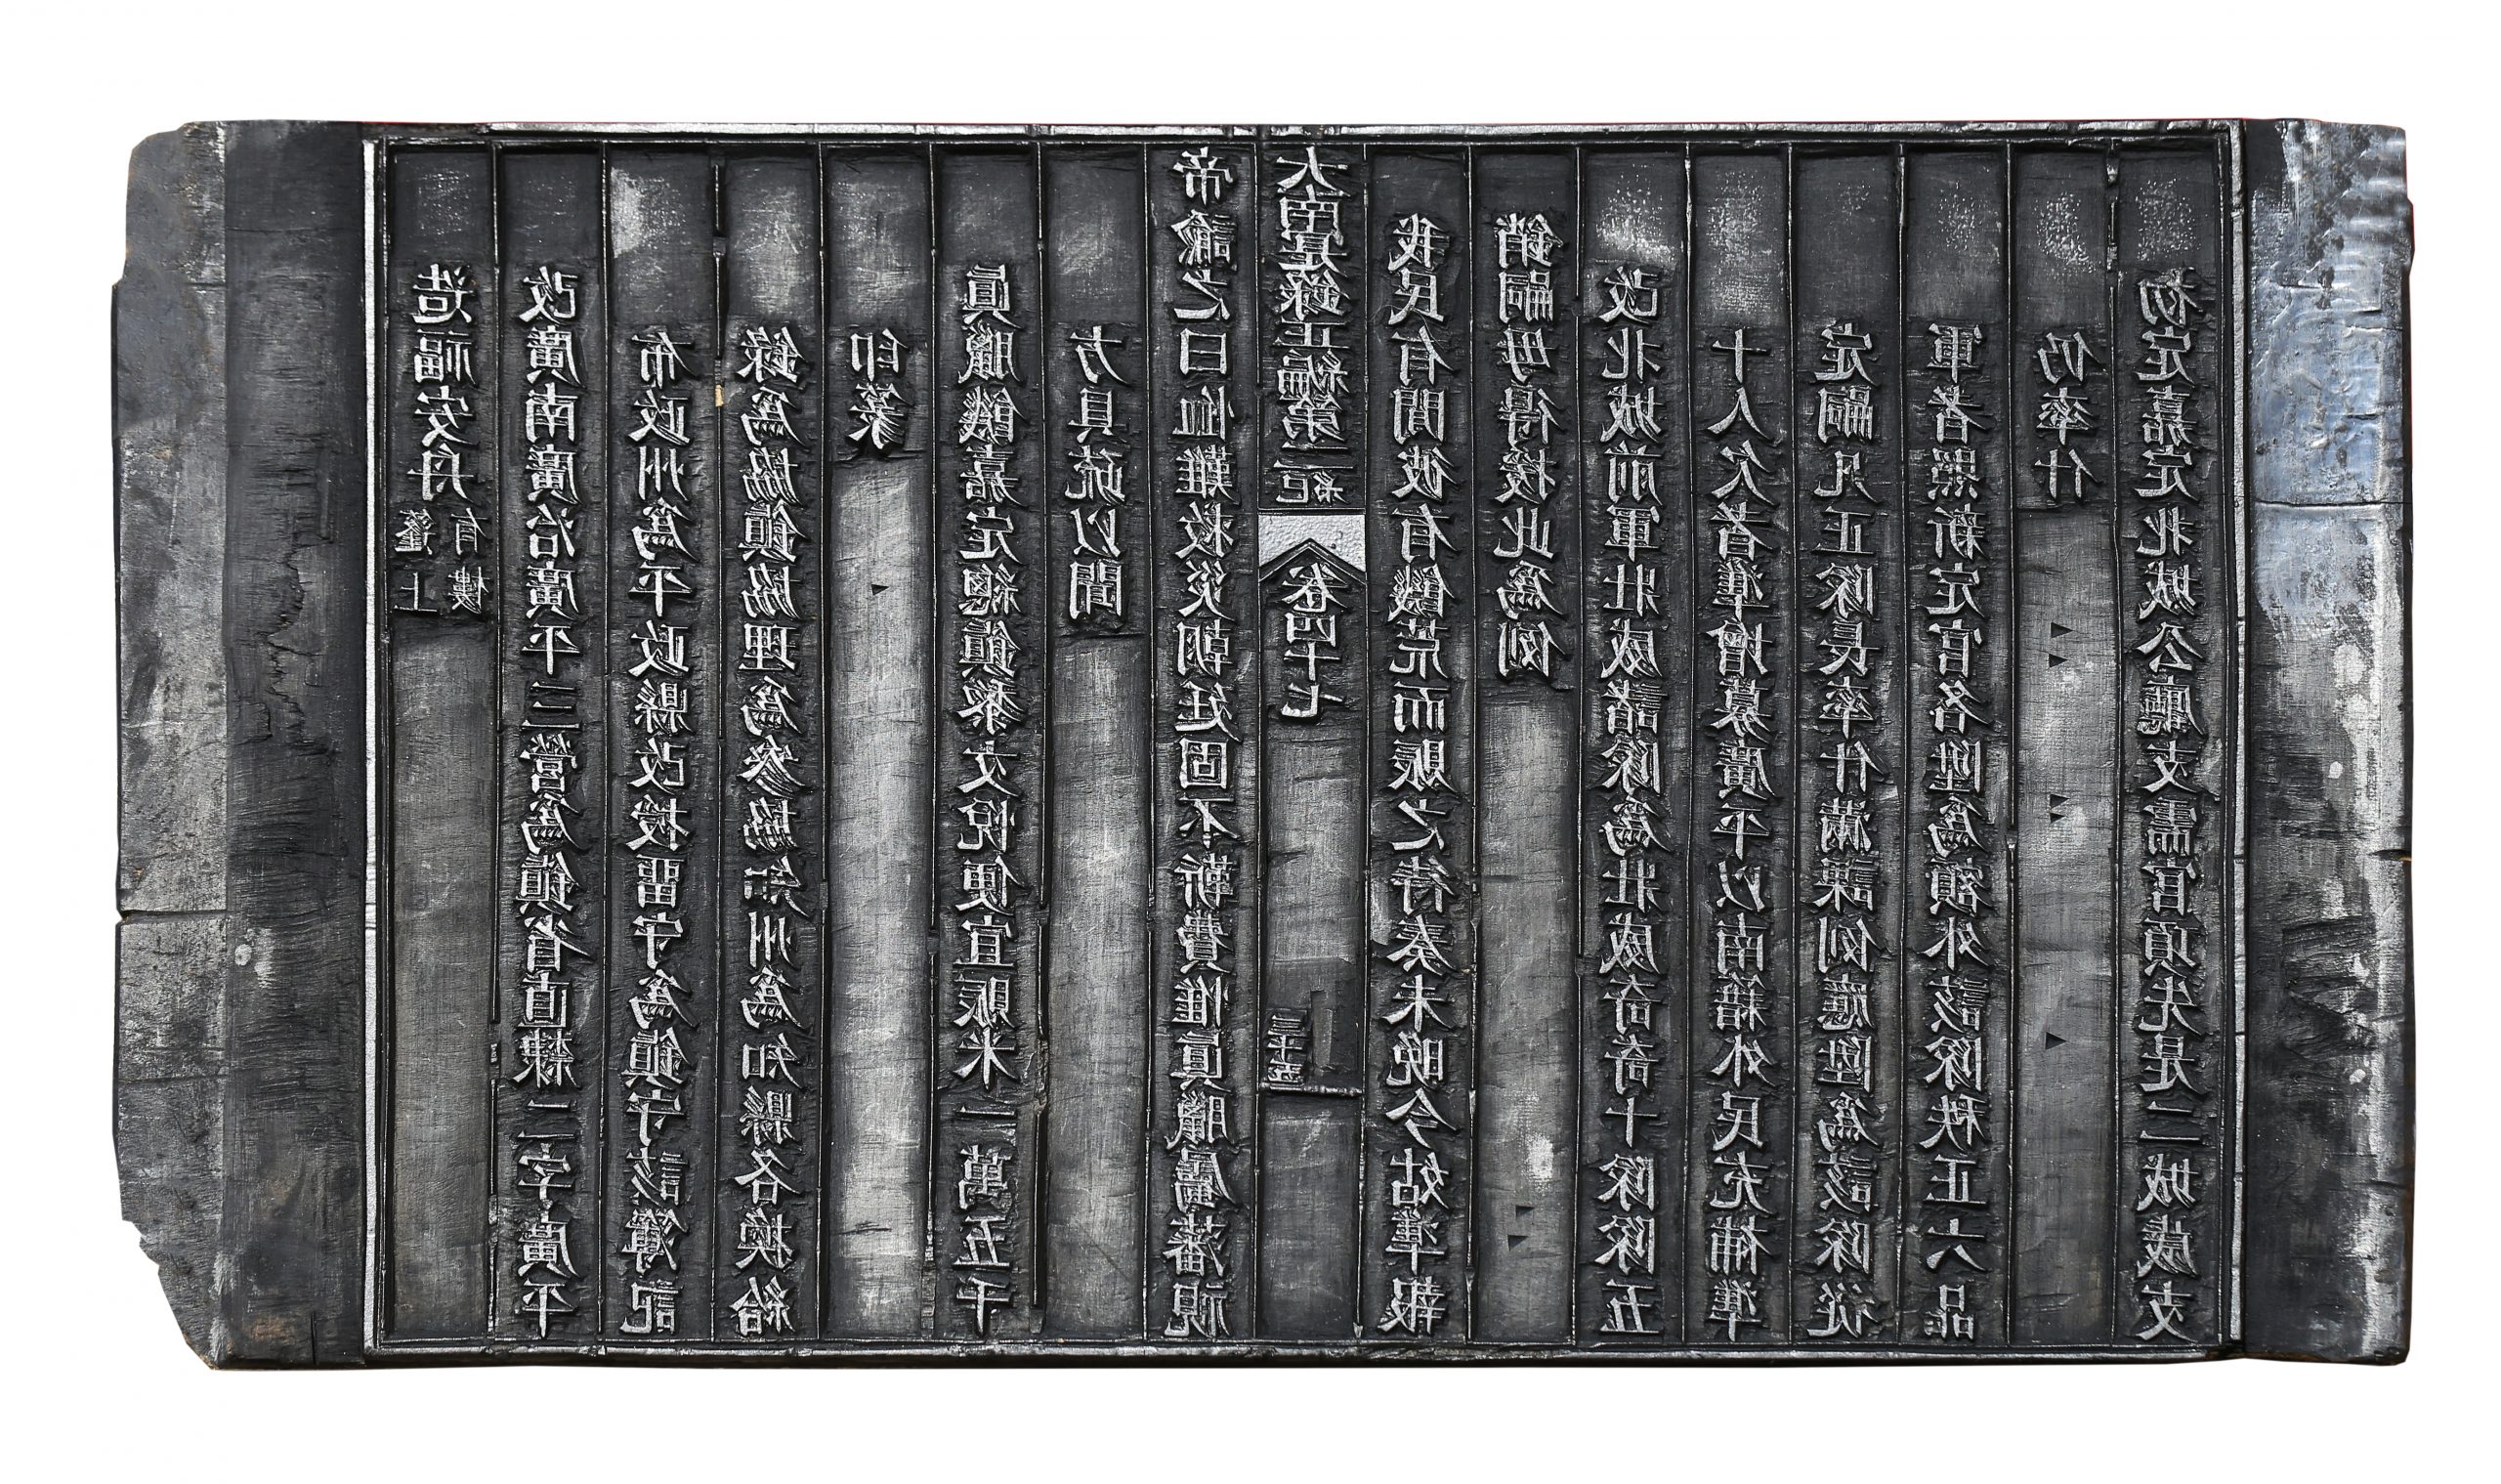 造福安舟蓬上有樓
改廣南廣治廣平三營爲鎮省直隸二字廣平
布政州爲平政縣改授留守爲鎮守該簿記
錄爲協鎮協理爲參協知州爲知縣各換給
印篆
眞臘饑嘉定總鎮黎文悅便宜賑米一萬五千
方具疏以聞
帝諭之曰恤難救災朝廷固不靳費惟眞臘屬藩視
大南寔錄正編第二紀 卷四十七
我民有間彼有饑荒而賑之待奏未晚今姑準報
銷嗣毋得援此爲例
改北城前軍壯威諸隊爲壯威奇奇十隊隊五
十人欠者準增募廣平以南籍外民充補準
定嗣凡正隊長率什滿課例應陞爲該隊從
軍者照新定官名陞爲額外該隊秩正六品
仍率什
初定嘉定北城公廳支需官項先是二城歲支